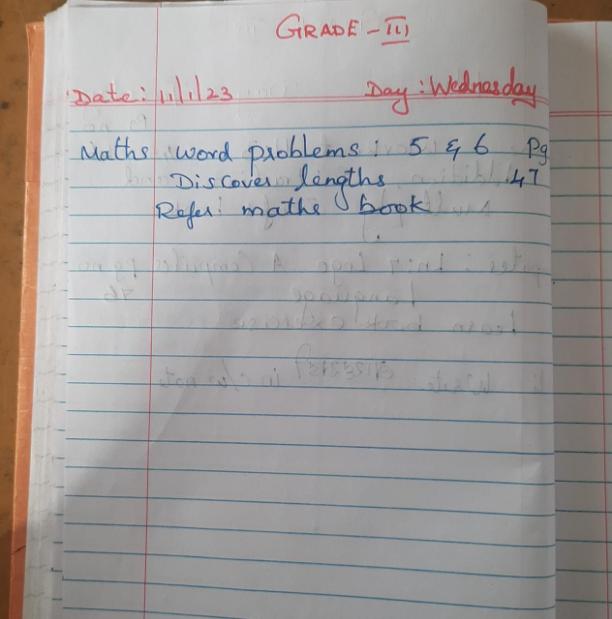 GRADE - III
Date: 11/1/23 Day: Wednesday
Maths word problems: 5 & 6 Pg
Discover lengths 47
Refer: maths book